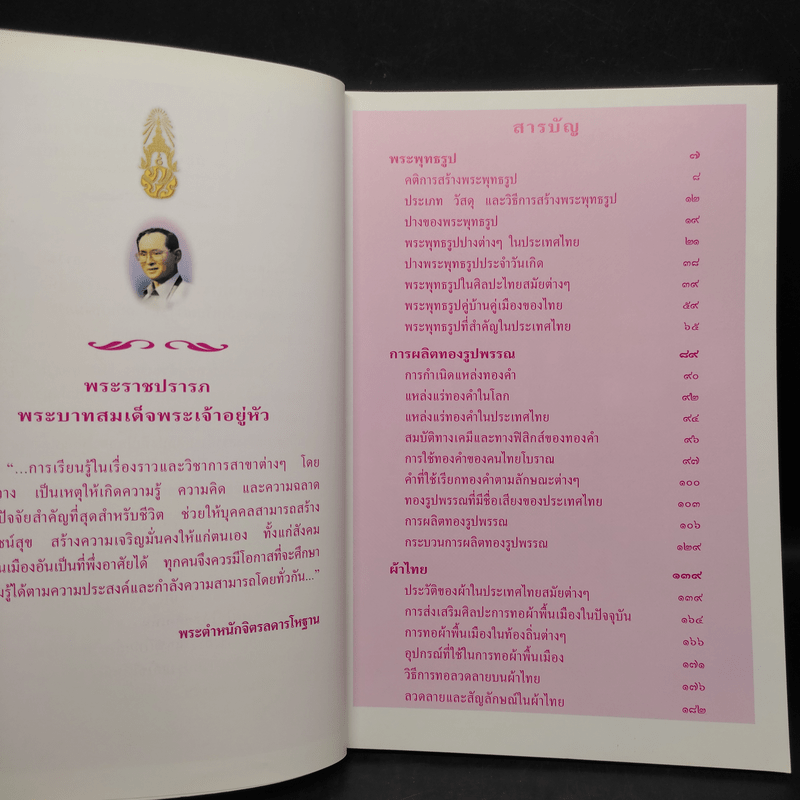 พระราชปรารภ
พระบาทสมเด็จพระเจ้าอยู่หัว
“...การเรียนรู้ในเรื่องราวและวิชาการสาขาต่างๆ โดย
เป็นเหตุให้เกิดความรู้ ความคิด และความฉลาด
ปัจจัยสำคัญที่สุดสำหรับชีวิต ช่วยให้บุคคลสามารถสร้าง
สร้างความเจริญมั่นคงให้แก่ตนเอง ทั้งแก่สังคม
เมืองอันเป็นที่พึ่งอาศัยได้ ทุกคนจึงควรมีโอกาสที่จะศึกษา
ได้ตามความประสงค์และกำลังความสามารถโดยทั่วกัน...”
พระตำหนักจิตรลดารโหฐาน
สารบัญ
พระพุทธรูป ๗
คติการสร้างพระพุทธรูป ๘
ประเภท วัสดุ และวิธีการสร้างพระพุทธรูป ๑๒
ปางของพระพุทธรูป ๑๙
พระพุทธรูปปางต่างๆ ในประเทศไทย ๒๑
ปางพระพุทธรูปประจำวันเกิด ๓๘
พระพุทธรูปในศิลปะไทยสมัยต่างๆ ๓๙
พระพุทธรูปคู่บ้านคู่เมืองของไทย ๕๙
พระพุทธรูปที่สำคัญในประเทศไทย ๖๕
การผลิตทองรูปพรรณ ๘๙
การกำเนิดแหล่งทองคำ ๙๐
แหล่งแร่ทองคำในโลก ๙๒
แหล่งแร่ทองคำในประเทศไทย ๙๔
สมบัติทางเคมีและทางฟิสิกส์ของทองคำ ๙๖
การใช้ทองคำของคนไทยโบราณ ๙๗
คำที่ใช้เรียกทองคำตามลักษณะต่างๆ ๑๐๐
ทองรูปพรรณที่มีชื่อเสียงของประเทศไทย ๑๐๓
การผลิตทองรูปพรรณ ๑๐๖
กระบวนการผลิตทองรูปพรรณ ๑๒๙
ผ้าไทย ๑๓๙
ประวัติของผ้าในประเทศไทยสมัยต่างๆ ๑๓๙
การส่งเสริมศิลปะการทอผ้าพื้นเมืองในปัจจุบัน ๑๖๔
การทอผ้าพื้นเมืองในท้องถิ่นต่างๆ ๑๖๖
อุปกรณ์ที่ใช้ในการทอผ้าพื้นเมือง ๑๗๑
วิธีการทอลวดลายบนผ้าไทย ๑๗๖
ลวดลายและสัญลักษณ์ในผ้าไทย ๑๘๒